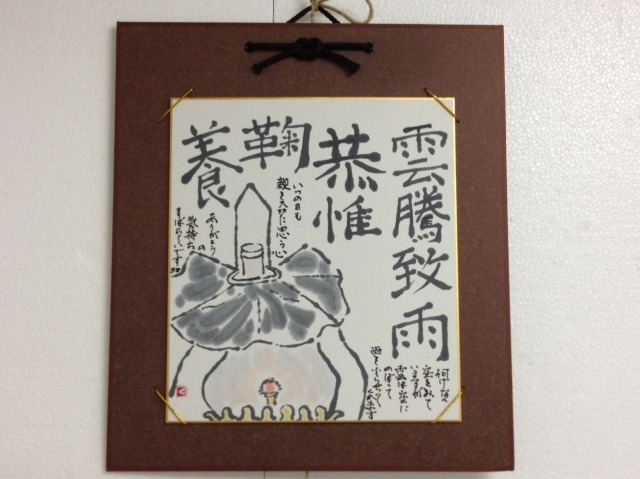 雲騰致雨
何げなく
空をみて
いますが
雲は空に
のぼって
雨をふらせて
くれます
恭惟
鞠
養
いつの日も
親を大切に思う心
ありがとう
の
気持ち